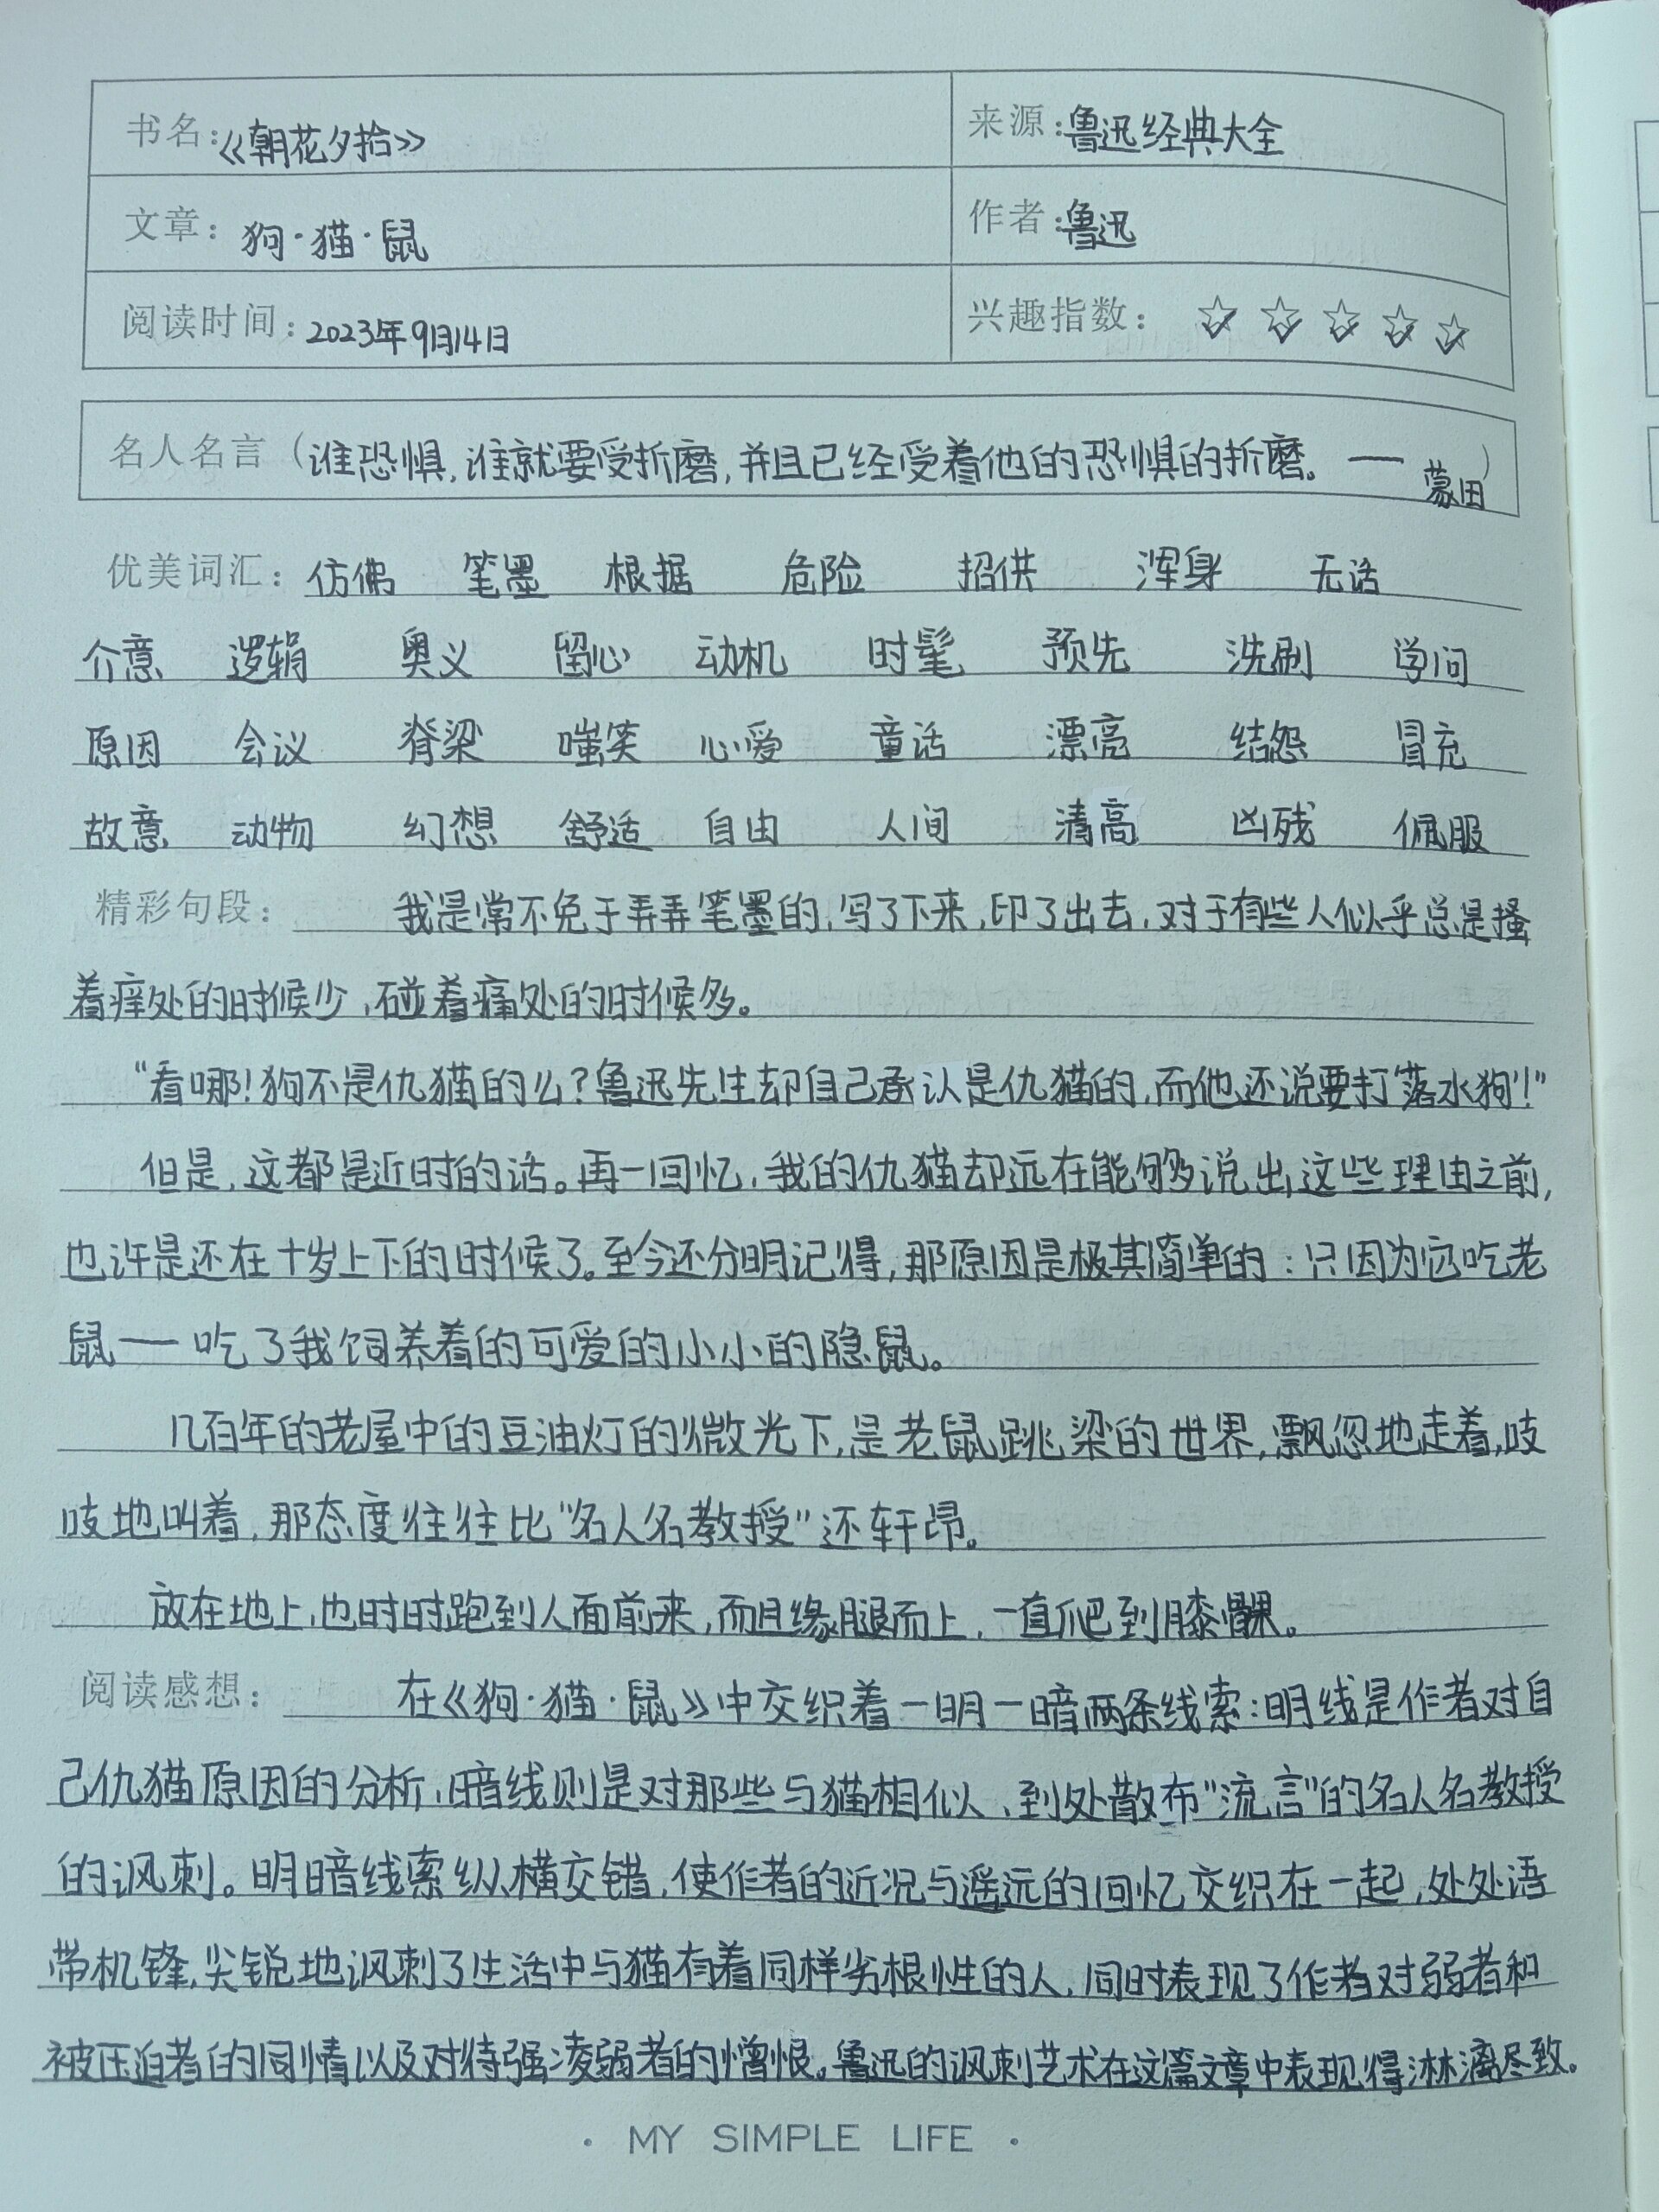 书名：《朝花夕拾》 来源：鲁迅经典大全
文章：狗·猫·鼠 作者：鲁迅
阅读时间：2023年9月14日 兴趣指数：☆ ☆ ☆ ☆ ☆
名人名言（谁恐惧，谁就要受折磨，并且已经受着他的恐惧的折磨。——蒙田）
优美词汇：仿佛 笔墨 根据 危险 招供 浑身 无话
介意 逻辑 奥义 留心 动机 时髦 预先 洗刷 学问
原因 会议 脊梁 嗤笑 心爱 童话 漂亮 结怨 冒充
故意 动物 幻想 舒适 自由 人间 清高 凶残 佩服
精彩句段： 我是常不免于弄弄笔墨的，写了下来，印了出去，对于有些人似乎总是搔
着痒处的时候少，碰着痛处的时候多。
“看哪！狗不是仇猫的么？鲁迅先生却自己承认是仇猫的，而他还说要打‘落水狗’！”
但是，这都是近时的话。再一回忆，我的仇猫却远在能够说出这些理由之前，
也许是还在十岁上下的时候了。至今还分明记得，那原因是极其简单的：只因为它吃老
鼠——吃了我饲养着的可爱的小小的隐鼠。
几百年的老屋中的豆油灯的微光下，是老鼠跳梁的世界，飘忽地走着，吱
吱地叫着，那态度往往比“名人名教授”还轩昂。
放在地上，也时时跑到人面前来，而且缘腿而上，一直爬到膝髁。
阅读感想： 在《狗·猫·鼠》中交织着一明一暗两条线索：明线是作者对自
己仇猫原因的分析，暗线则是对那些与猫相似、到处散布“流言”的名人名教授
的讽刺。明暗线索纵横交错，使作者的近况与遥远的回忆交织在一起，处处语
带机锋，尖锐地讽刺了生活中与猫有着同样劣根性的人，同时表现了作者对弱者和
被压迫者的同情以及对恃强凌弱者的憎恨。鲁迅的讽刺艺术在这篇文章中表现得淋漓尽致。
· MY SIMPLE LIFE ·